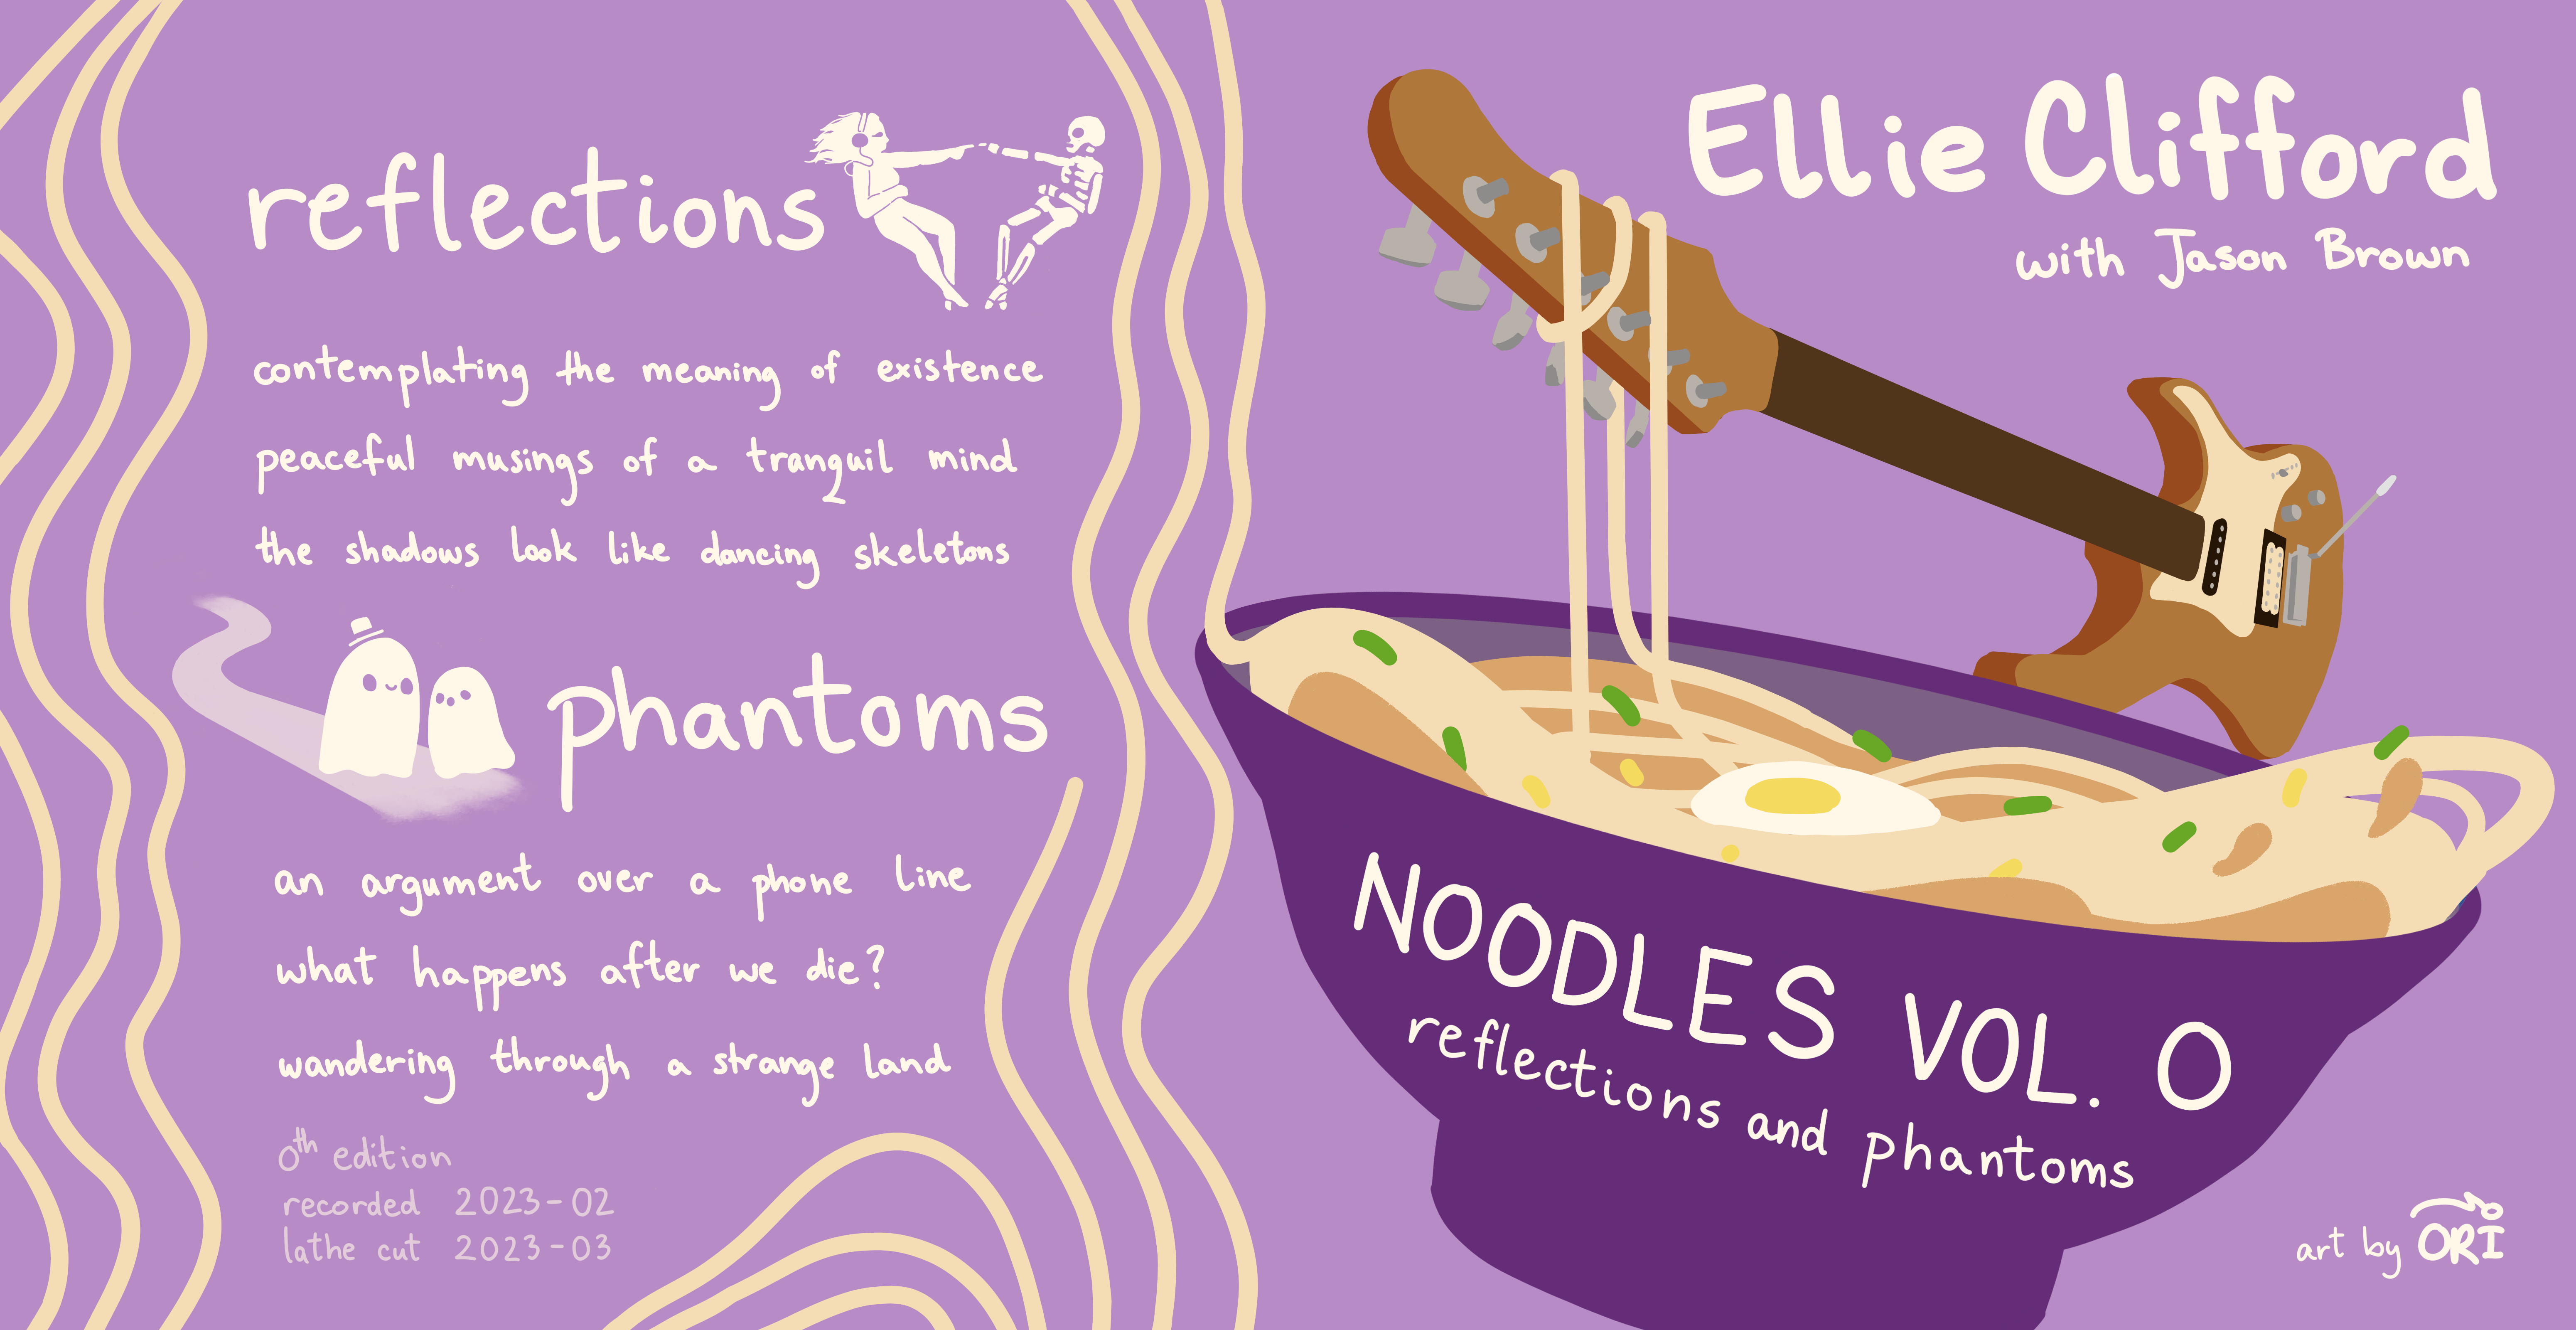 reflections
contemplating the meaning of existence
peaceful musings of a tranquil mind
the shadows look like dancing skeletons
phantoms
an argument over a phone line
what happens after we die?
wandering through a strange land
0th edition
recorded 2023-02
lathe cut 2023-03
Ellie Clifford
with Jason Brown
NOODLES VOL. 0
reflections and phantoms
art by ORI